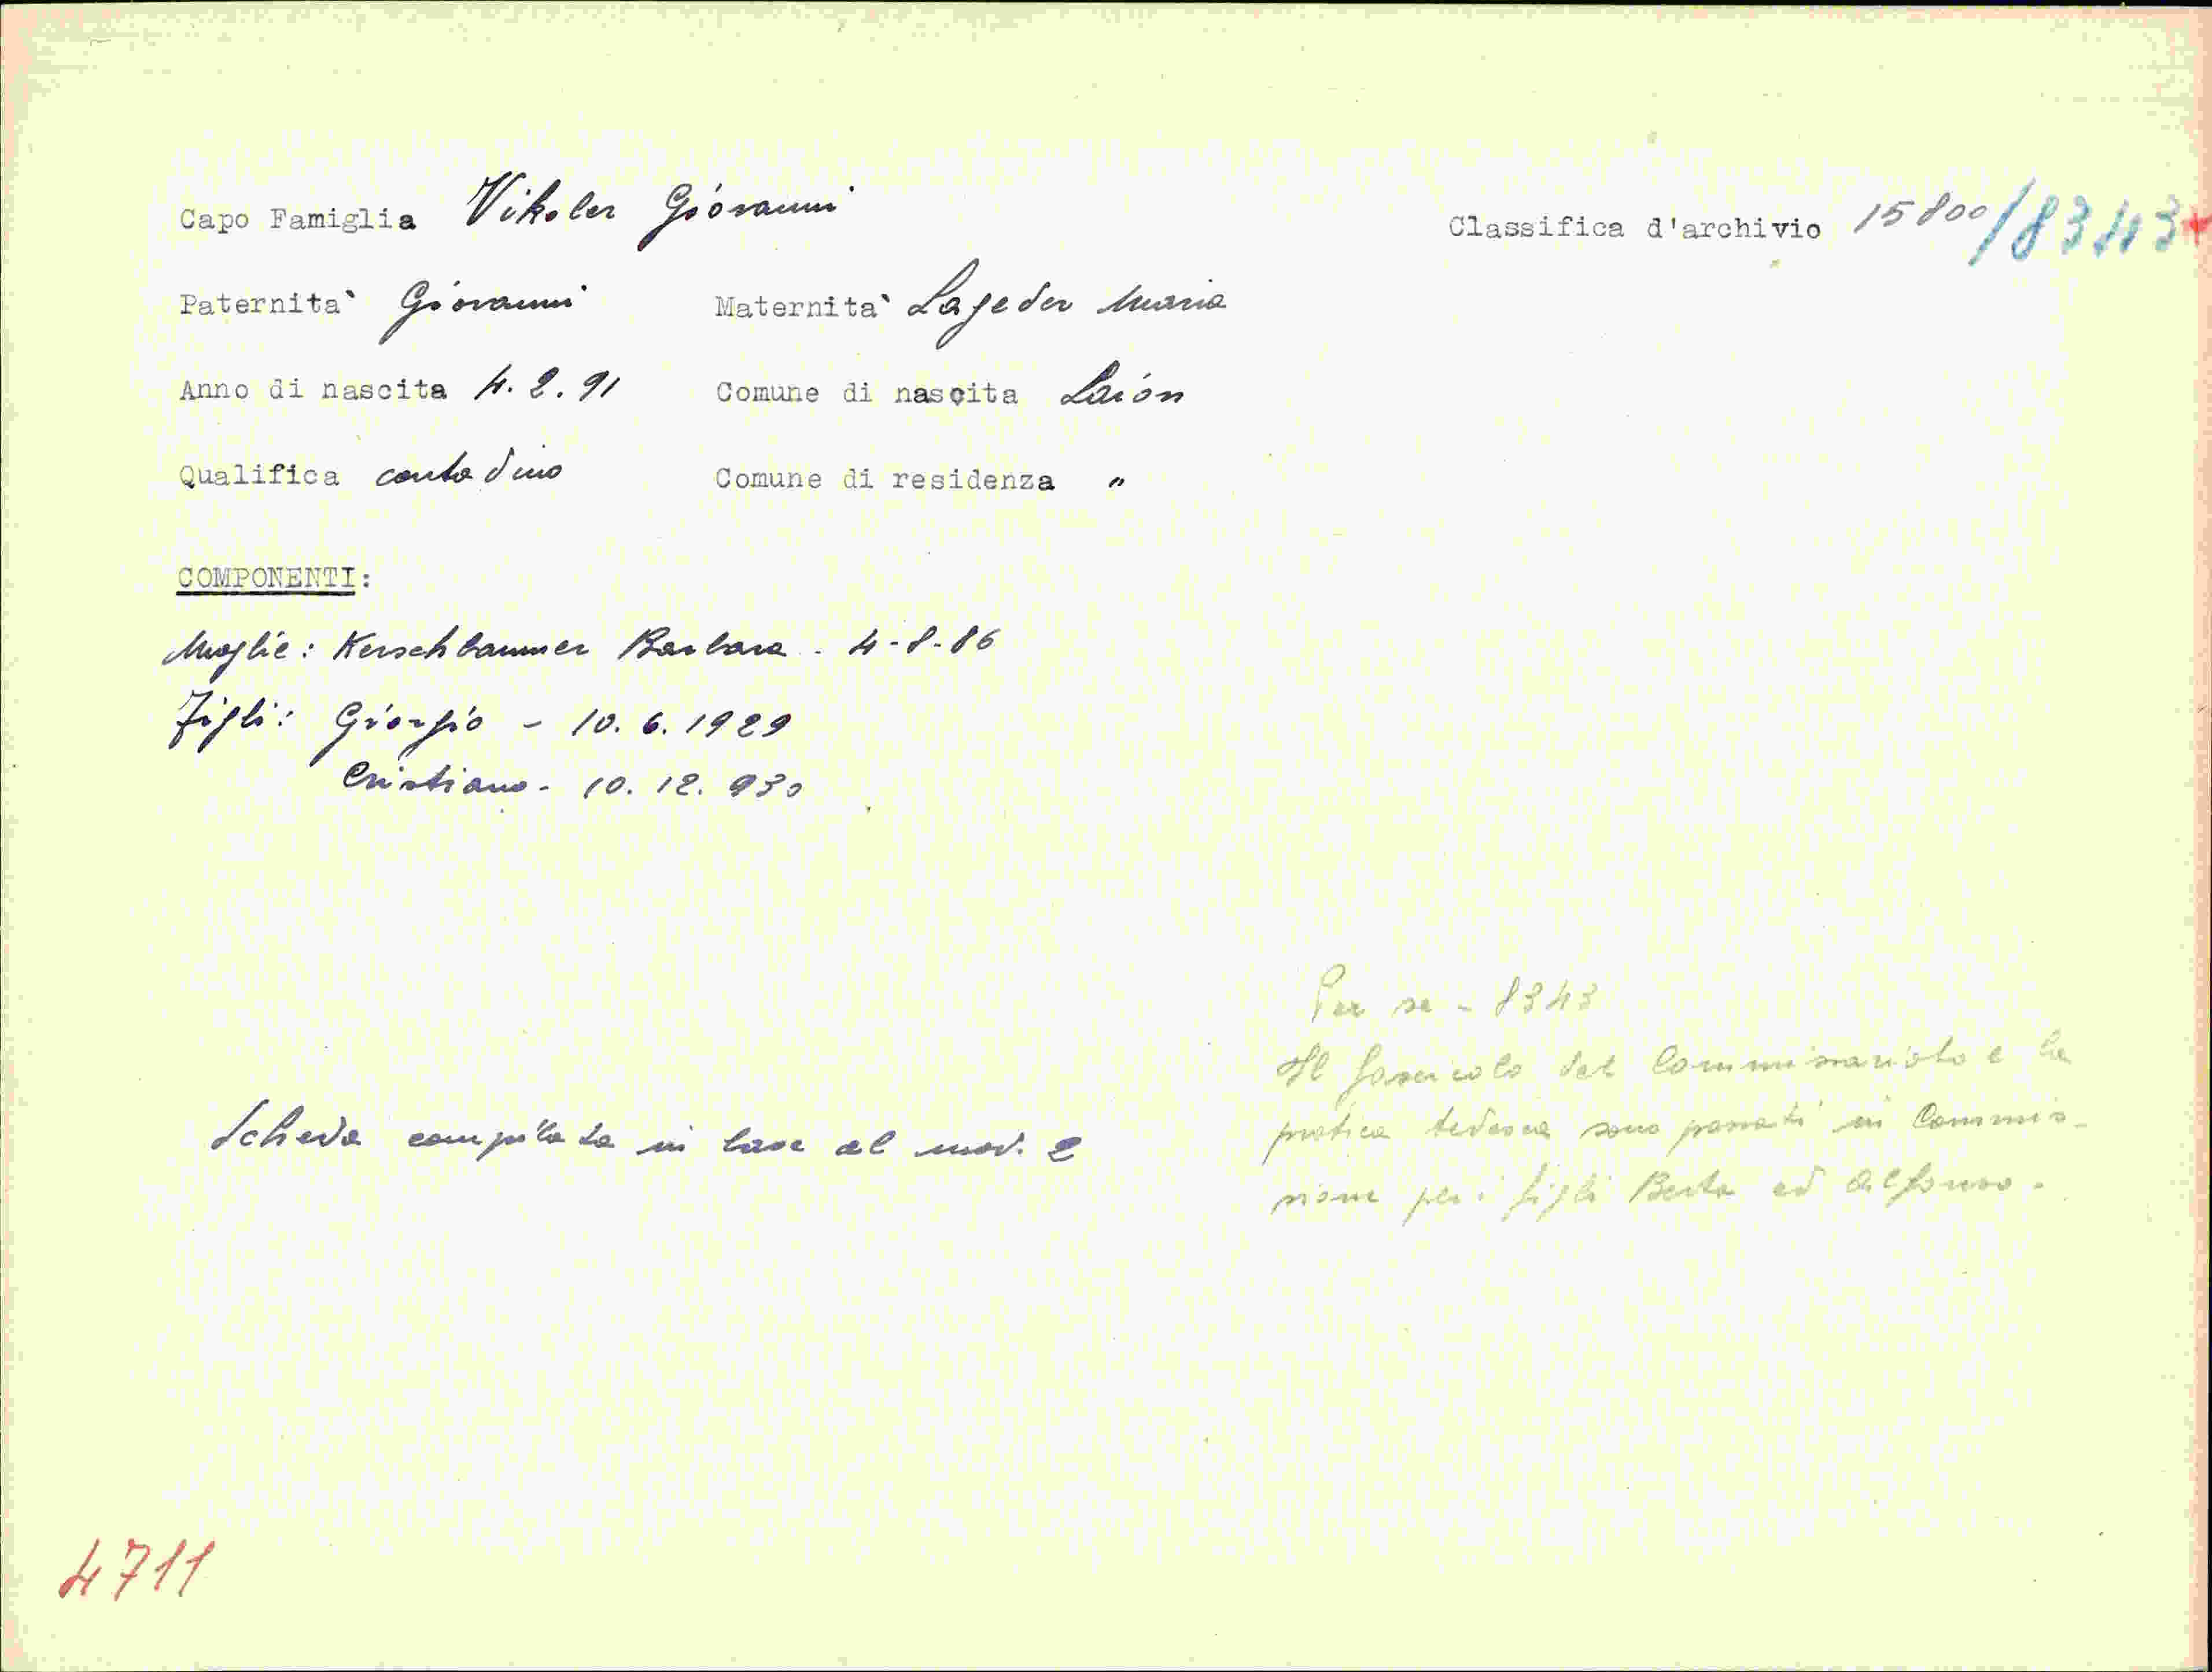 Capo Famiglia Vikoler Giovanni
Classifica d'archivio 15800/8343+
Paternita` Giovanni Maternita` Lageder Maria
Anno di nascita 4.2.91 Comune di nascita Laion
Qualifica contadino Comune di residenza "
COMPONENTI:
Moglie: Kerschbaumer Barbara - 4-8-86
Figli: Giorgio - 10.6.1929
Cristiano - 10.12.930
Per se - 8343
Il fascicolo del Commissariato e la
pratica tedesca sono passati in Commis-
sione per i figli Berta ed Alfonso.
Scheda compilata in base al mod. 2
4711